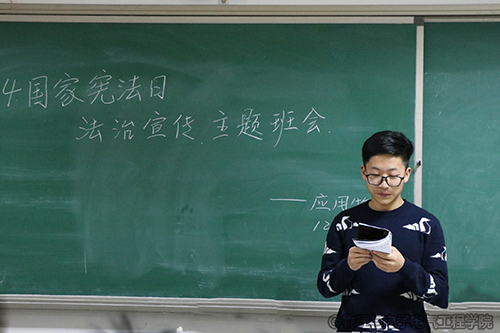 4国家宪法日
法治宣传.主题班会.
——应用
12
工程学院